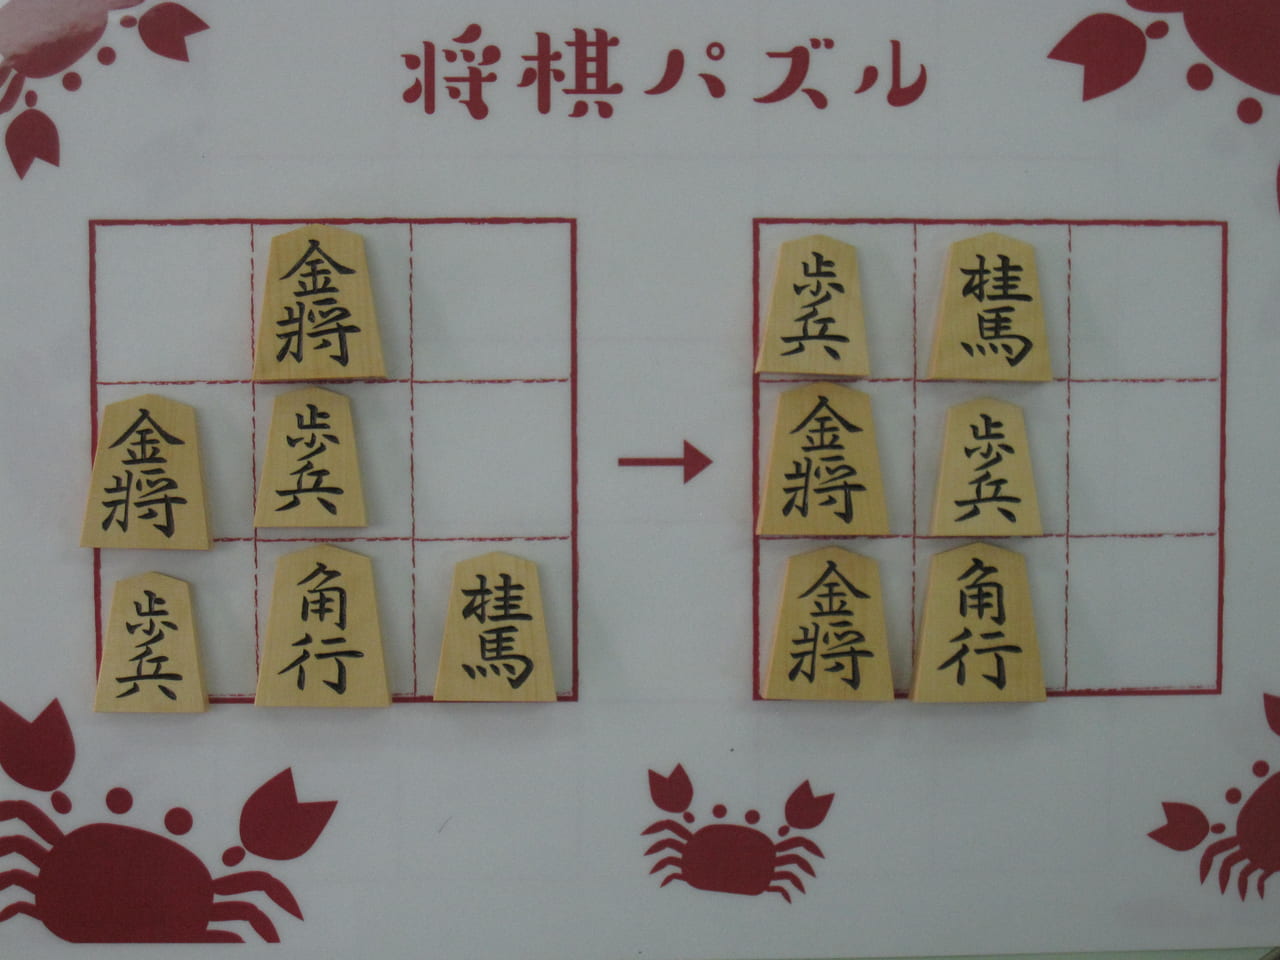 将棋パズル
金將
歩兵
桂馬
金將
歩兵
金將
歩兵
歩兵
角行
桂馬
金將
角行